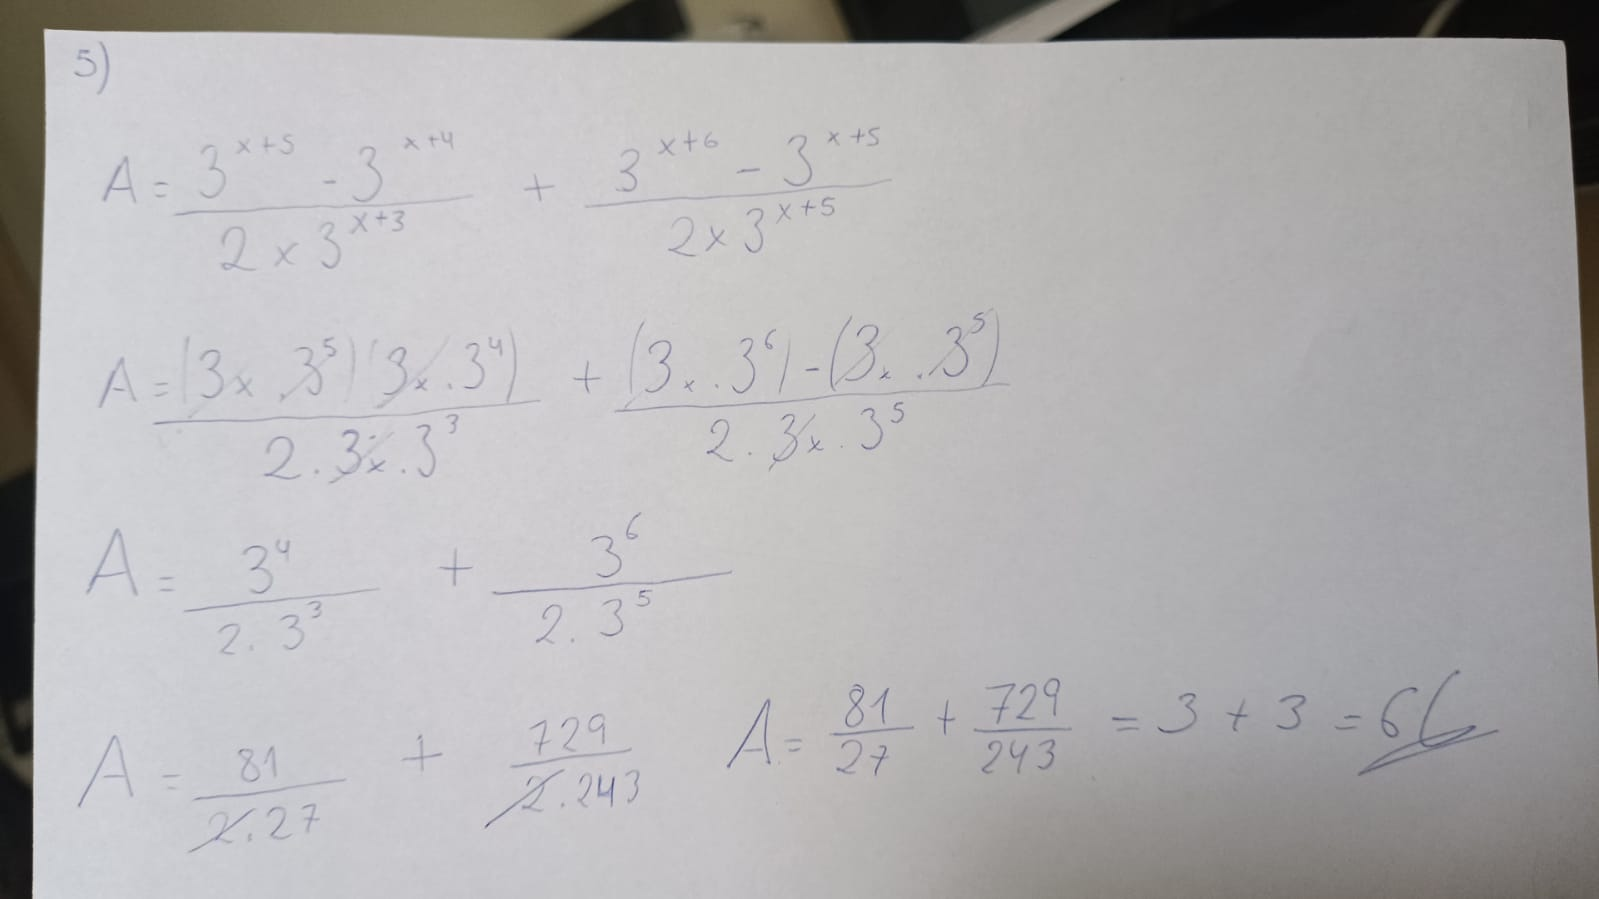 5)
A = (3^(x+5) - 3^(x+4)) / (2 x 3^(x+3)) + (3^(x+6) - 3^(x+5)) / (2 x 3^(x+5))
A = (3x . 3^5) (3x . 3^4) / (2 . 3x . 3^3) + (3x . 3^6) - (3x . 3^5) / (2 . 3x . 3^5)
A = 3^4 / (2 . 3^3) + 3^6 / (2 . 3^5)
A = 81 / (2 . 27) + 729 / (2 . 243)
A = 81/27 + 729/243 = 3 + 3 = 6